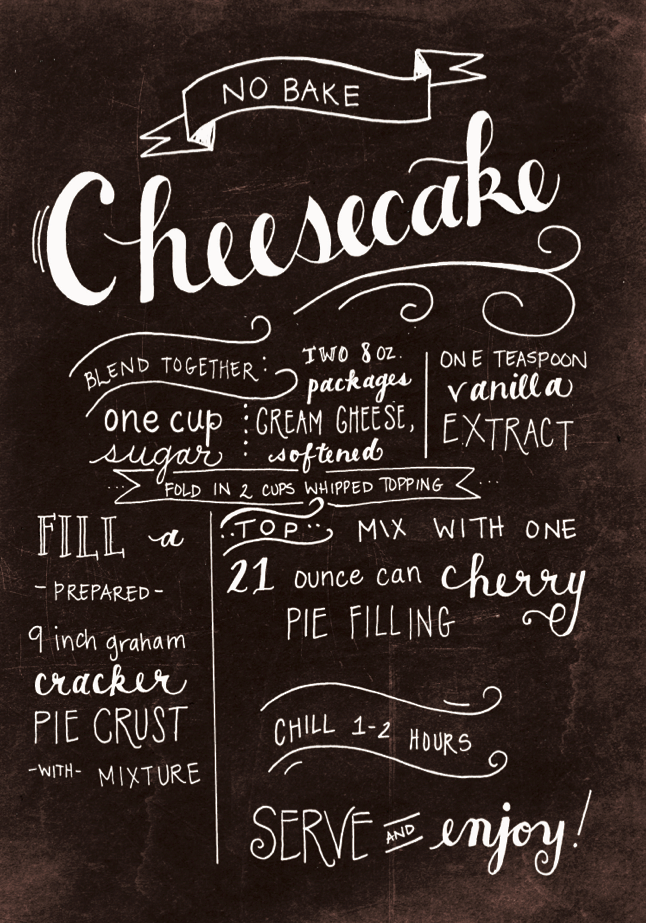 NO BAKE
Cheesecake
BLEND TOGETHER:
one cup
sugar
TWO 8 OZ.
packages
CREAM CHEESE,
softened
ONE TEASPOON
vanilla
EXTRACT
FOLD IN 2 CUPS WHIPPED TOPPING
FILL a
-PREPARED-
9 inch graham
cracker
PIE CRUST
-WITH- MIXTURE
TOP MIX WITH ONE
21 ounce can cherry
PIE FILLING
CHILL 1-2 HOURS
SERVE AND enjoy!